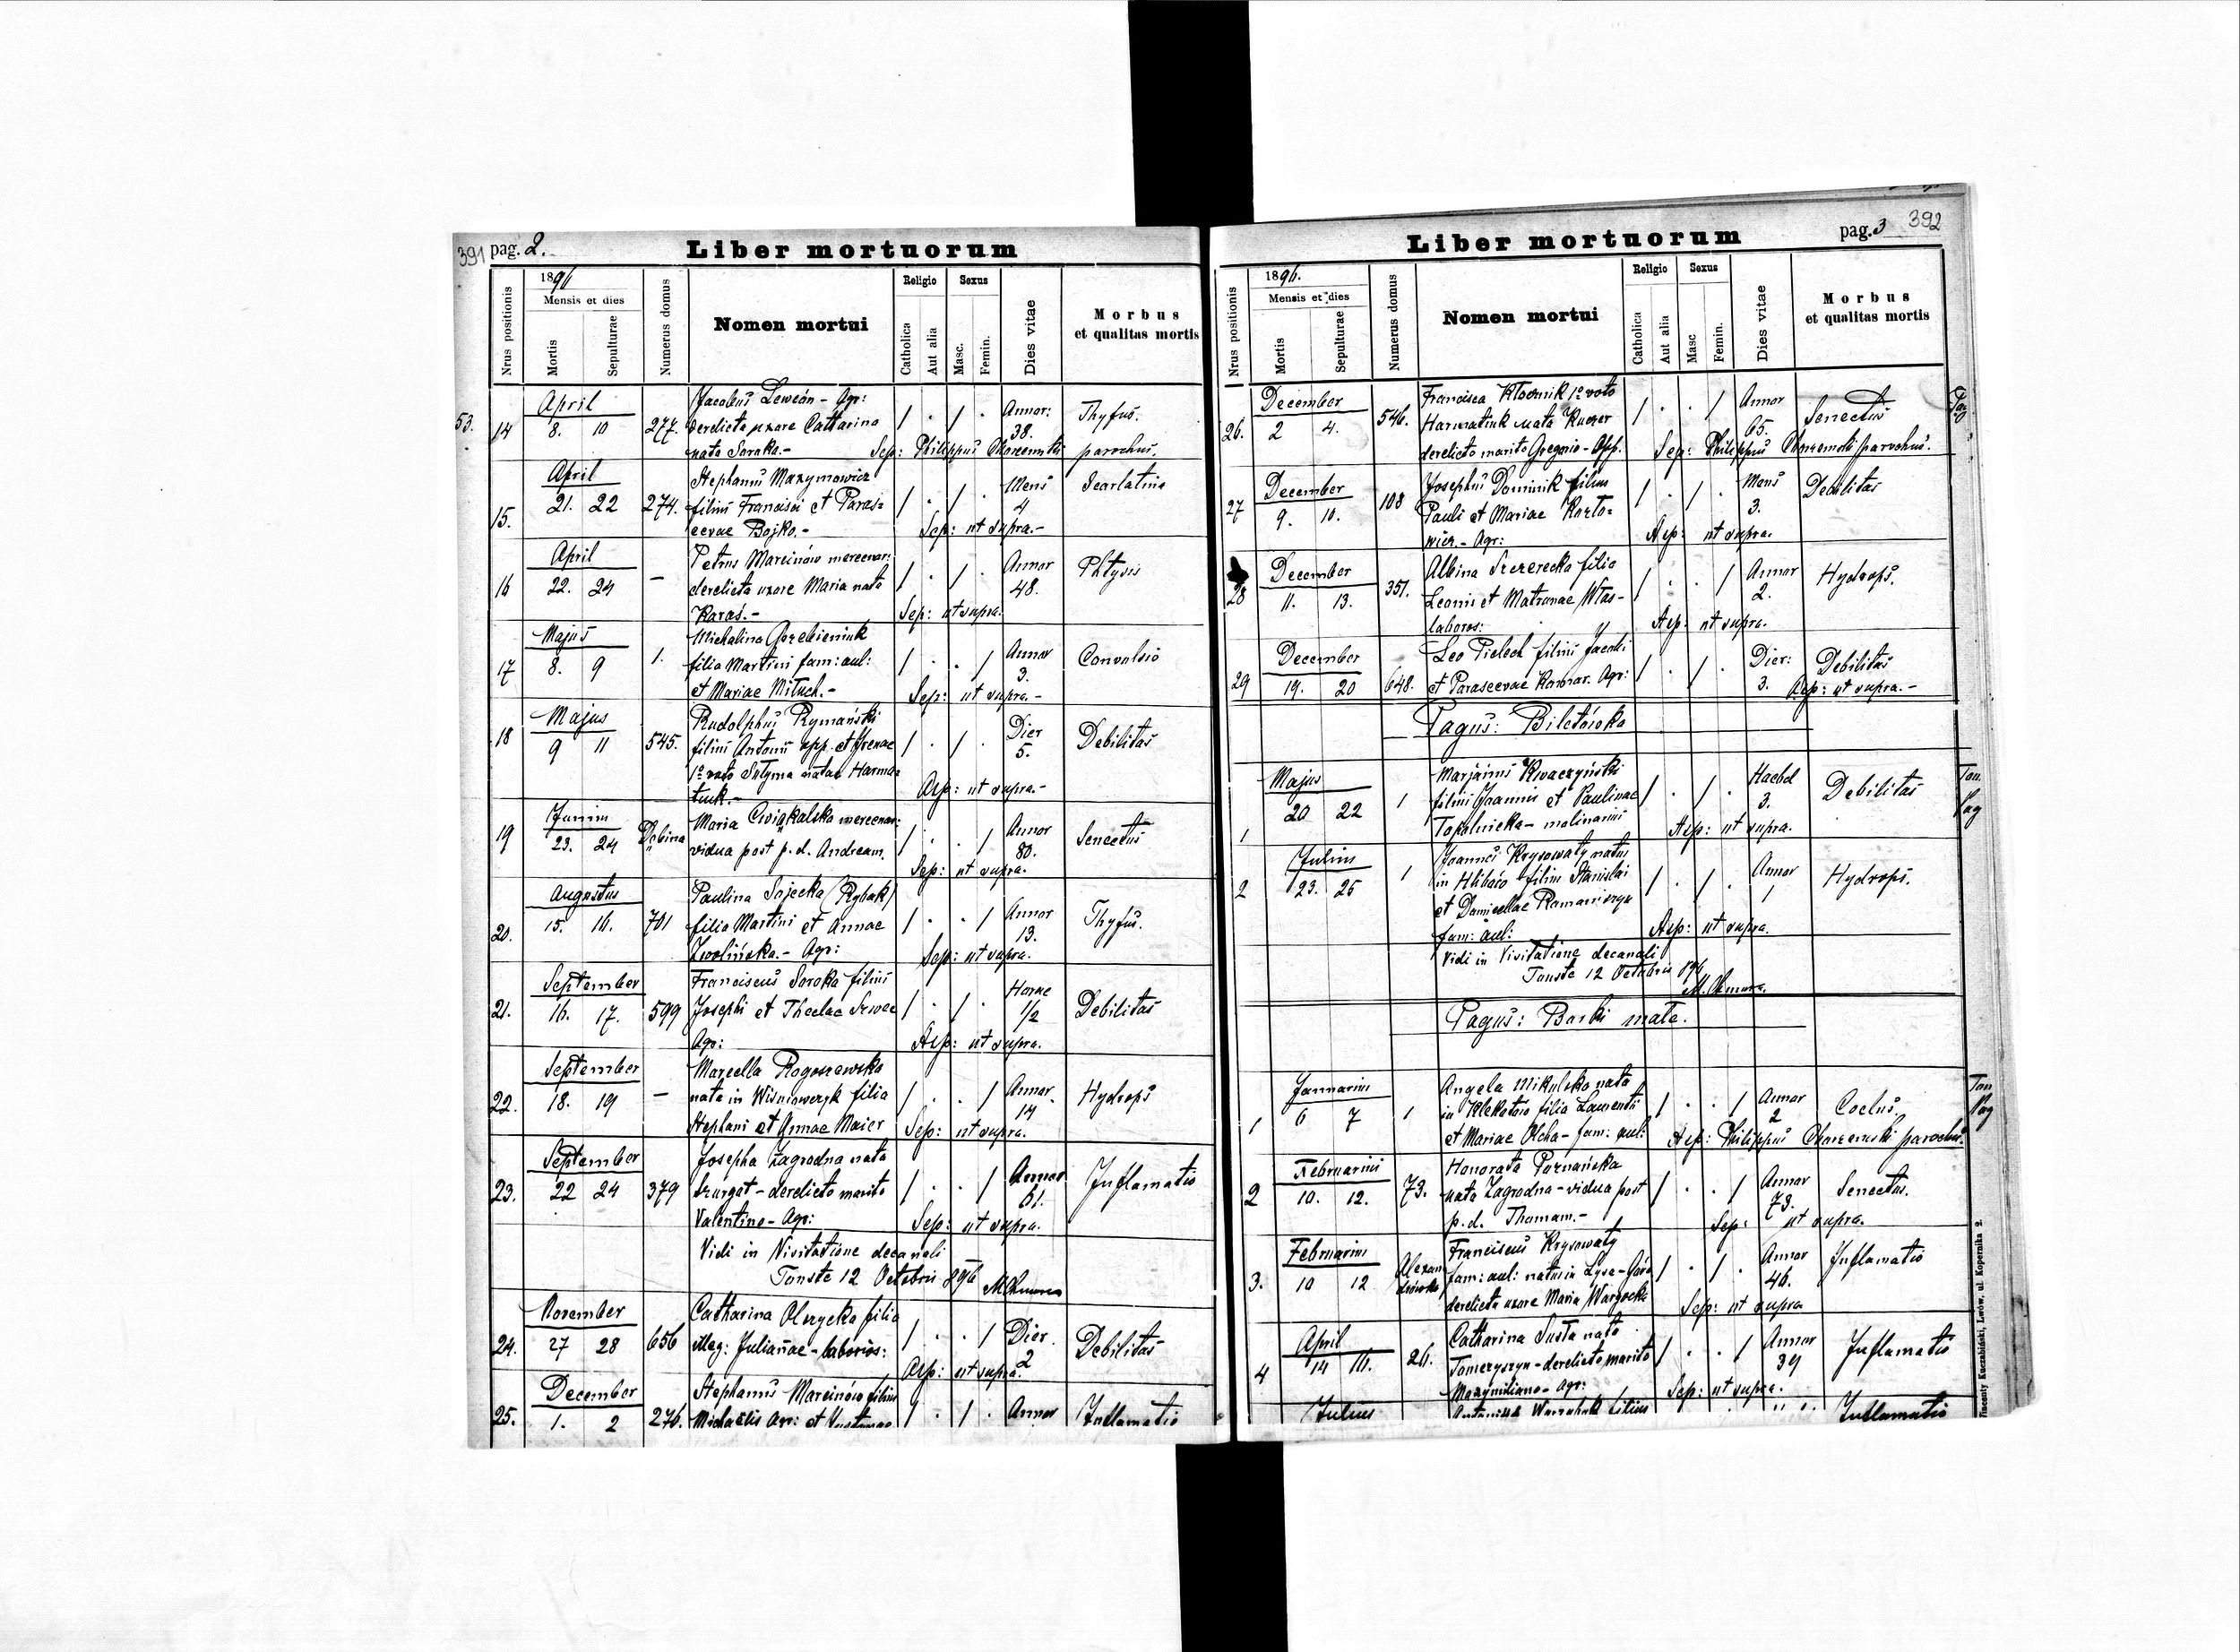 391 pag. 2.
Liber mortuorum
Nrus positionis
1896
Mensis et dies
Mortis
Sepulturae
Numerus domus
Nomen mortui
Religio
Catholica
Aut alia
Sexus
Masc.
Femin.
Dies vitae
Morbus
et qualitas mortis
53.
April
14 8. 10 277. Jacobus Lewcón - Agr:
derelicta uxore Catharina
nata Soroka.-
/ . / . Annor: 38. Thyfus.
Sep: Philippus parochus.
April
15. 21. 22 274. Stephanus Maxymowicz
filius Francisci et Paras=
cevae Bojko.-
/ . / . Mens 4 Scarlatina
Sep: ut supra.-
April
16 22. 24 — Petrus Marcinów mercenar:
derelicta uxore Maria nata
Karaś.-
/ . / . Annor 48. Phtysis
Sep: ut supra.
Majus
17 8. 9 1. Michalina
filia Martini fam: aul:
et Mariae Mituch.-
/ . . / Annor 3. Convulsio
Sep: ut supra.-
Majus
18 9 11 545. Rudolphus Rymański
filius Antonii opp. et Irenae
1º voto natae Harma=
tiuk.-
/ . / . Dier 5. Debilitas
Asp: ut supra.-
Junius
19 23. 24 Dębina Maria Cwiąkalska mercenar:
vidua post p. d. Andream.
/ . . / Annor 80. Senectus
Sep: ut supra.
Augustus
20. 15. 16. 701 Paulina Sajecka (Rybak)
filia Martini et Annae
Zwolińska.- Agr:
/ . . / Annor 13. Thyfus.
Sep: ut supra.
September
21. 16. 17. 599 Franciscus Soroka filius
Josephi et Theclae
Agr:
/ . / . Horae 1/2 Debilitas
Asp: ut supra.
September
22. 18. 19 — Marcella Rogoszewska
nata in Wisniowczyk filia
Stephani et Annae Maier
/ . . / Annor. 14 Hydrops
Sep: ut supra.
September
23. 22 24 379 Josepha Zagrodna nata
Szurgat - derelicto marito
Valentino - Agr:
/ . . / Annor 61. Inflamatio
Sep: ut supra.
Vidi in Visitatione decanali
Touste 12 Octobris 896
November
24. 27 28 656 Catharina Olszycka filia
illeg: Julianae - laborios:
/ . . / Dier. 2 Debilitas
Asp: ut supra.
December
25. 1. 2 276. Stephanus Marcinów filius
Michaëlis Agr: et
/ . / . Annor Inflamatio
pag. 3 392
Liber mortuorum
Nrus positionis
1896.
Mensis et dies
Mortis
Sepulturae
Numerus domus
Nomen mortui
Religio
Catholica
Aut alia
Sexus
Masc
Femin.
Dies vitae
Morbus
et qualitas mortis
December
26. 2 4. 546. Francisca 1º voto
Harmatiuk nata Kuczer
derelicto marito Gregorio - Opp.
/ . . / Annor 65. Senectus
Sep: Philippus parochus.
December
27 9. 10. 108 Josephus Dominik filius
Pauli et Mariae Kozło=
wicz.- Agr:
/ . / . Mens 3. Debilitas
Asp: ut supra.
December
28 11. 13. 351. Albina Szczerecka filia
Leonis et Matronae
labores:
/ . . / Annor 2. Hydrops.
Asp: ut supra.
December
29 19. 20 648. Leo Pielech filius Jacobi
et Parascevae Komar. Agr:
/ . / . Dier: 3. Debilitas
Asp: ut supra.-
Pagus: Biletówka
Majus
1 20 22 1 Marjanus Kwaczyński
filius Joannis et Paulinae
Topolnicka - molinarius
/ . / . Hebd 3. Debilitas
Asp: ut supra.
Julius
2 23. 25 1 Joannes Krysowaty natus
in filius Stanislai
et Domicellae
fam: aul:
/ . / . Annor 1 Hydrops.
Asp: ut supra.
Vidi in Visitatione decanali
Touste 12 Octobris 896
Pagus: Borki małe.
Januarius
1 6 7 1 Angela Mikulska nata
in Klekotów filia Laurentii
et Mariae Olcha - fam: aul:
/ . . / Annor 2 Coclus.
Asp: Philippus parochus.
Februarius
2 10. 12. 73. Honorata Poznańska
nata Zagrodna - vidua post
p. d. Thomam.-
/ . . / Annor 73. Senectus.
Sep: ut supra.
Februarius
3. 10 12 Alexandrówka Franciscus Krysowaty
fam: aul: natus in Łysa-Góra
derelicta uxore Maria Wargocka
/ . / . Annor 46. Inflamatio
Sep: ut supra
April
4 14 16. 26. Catharina Susta nata
Tomczyszyn - derelicto marito
Maxymiliano - Agr:
/ . . / Annor 39 Inflamatio
Sep: ut supra.
Julius
filius Inflamatio
Wincenty Kuczabiński, Lwów, ul. Kopernika 2.